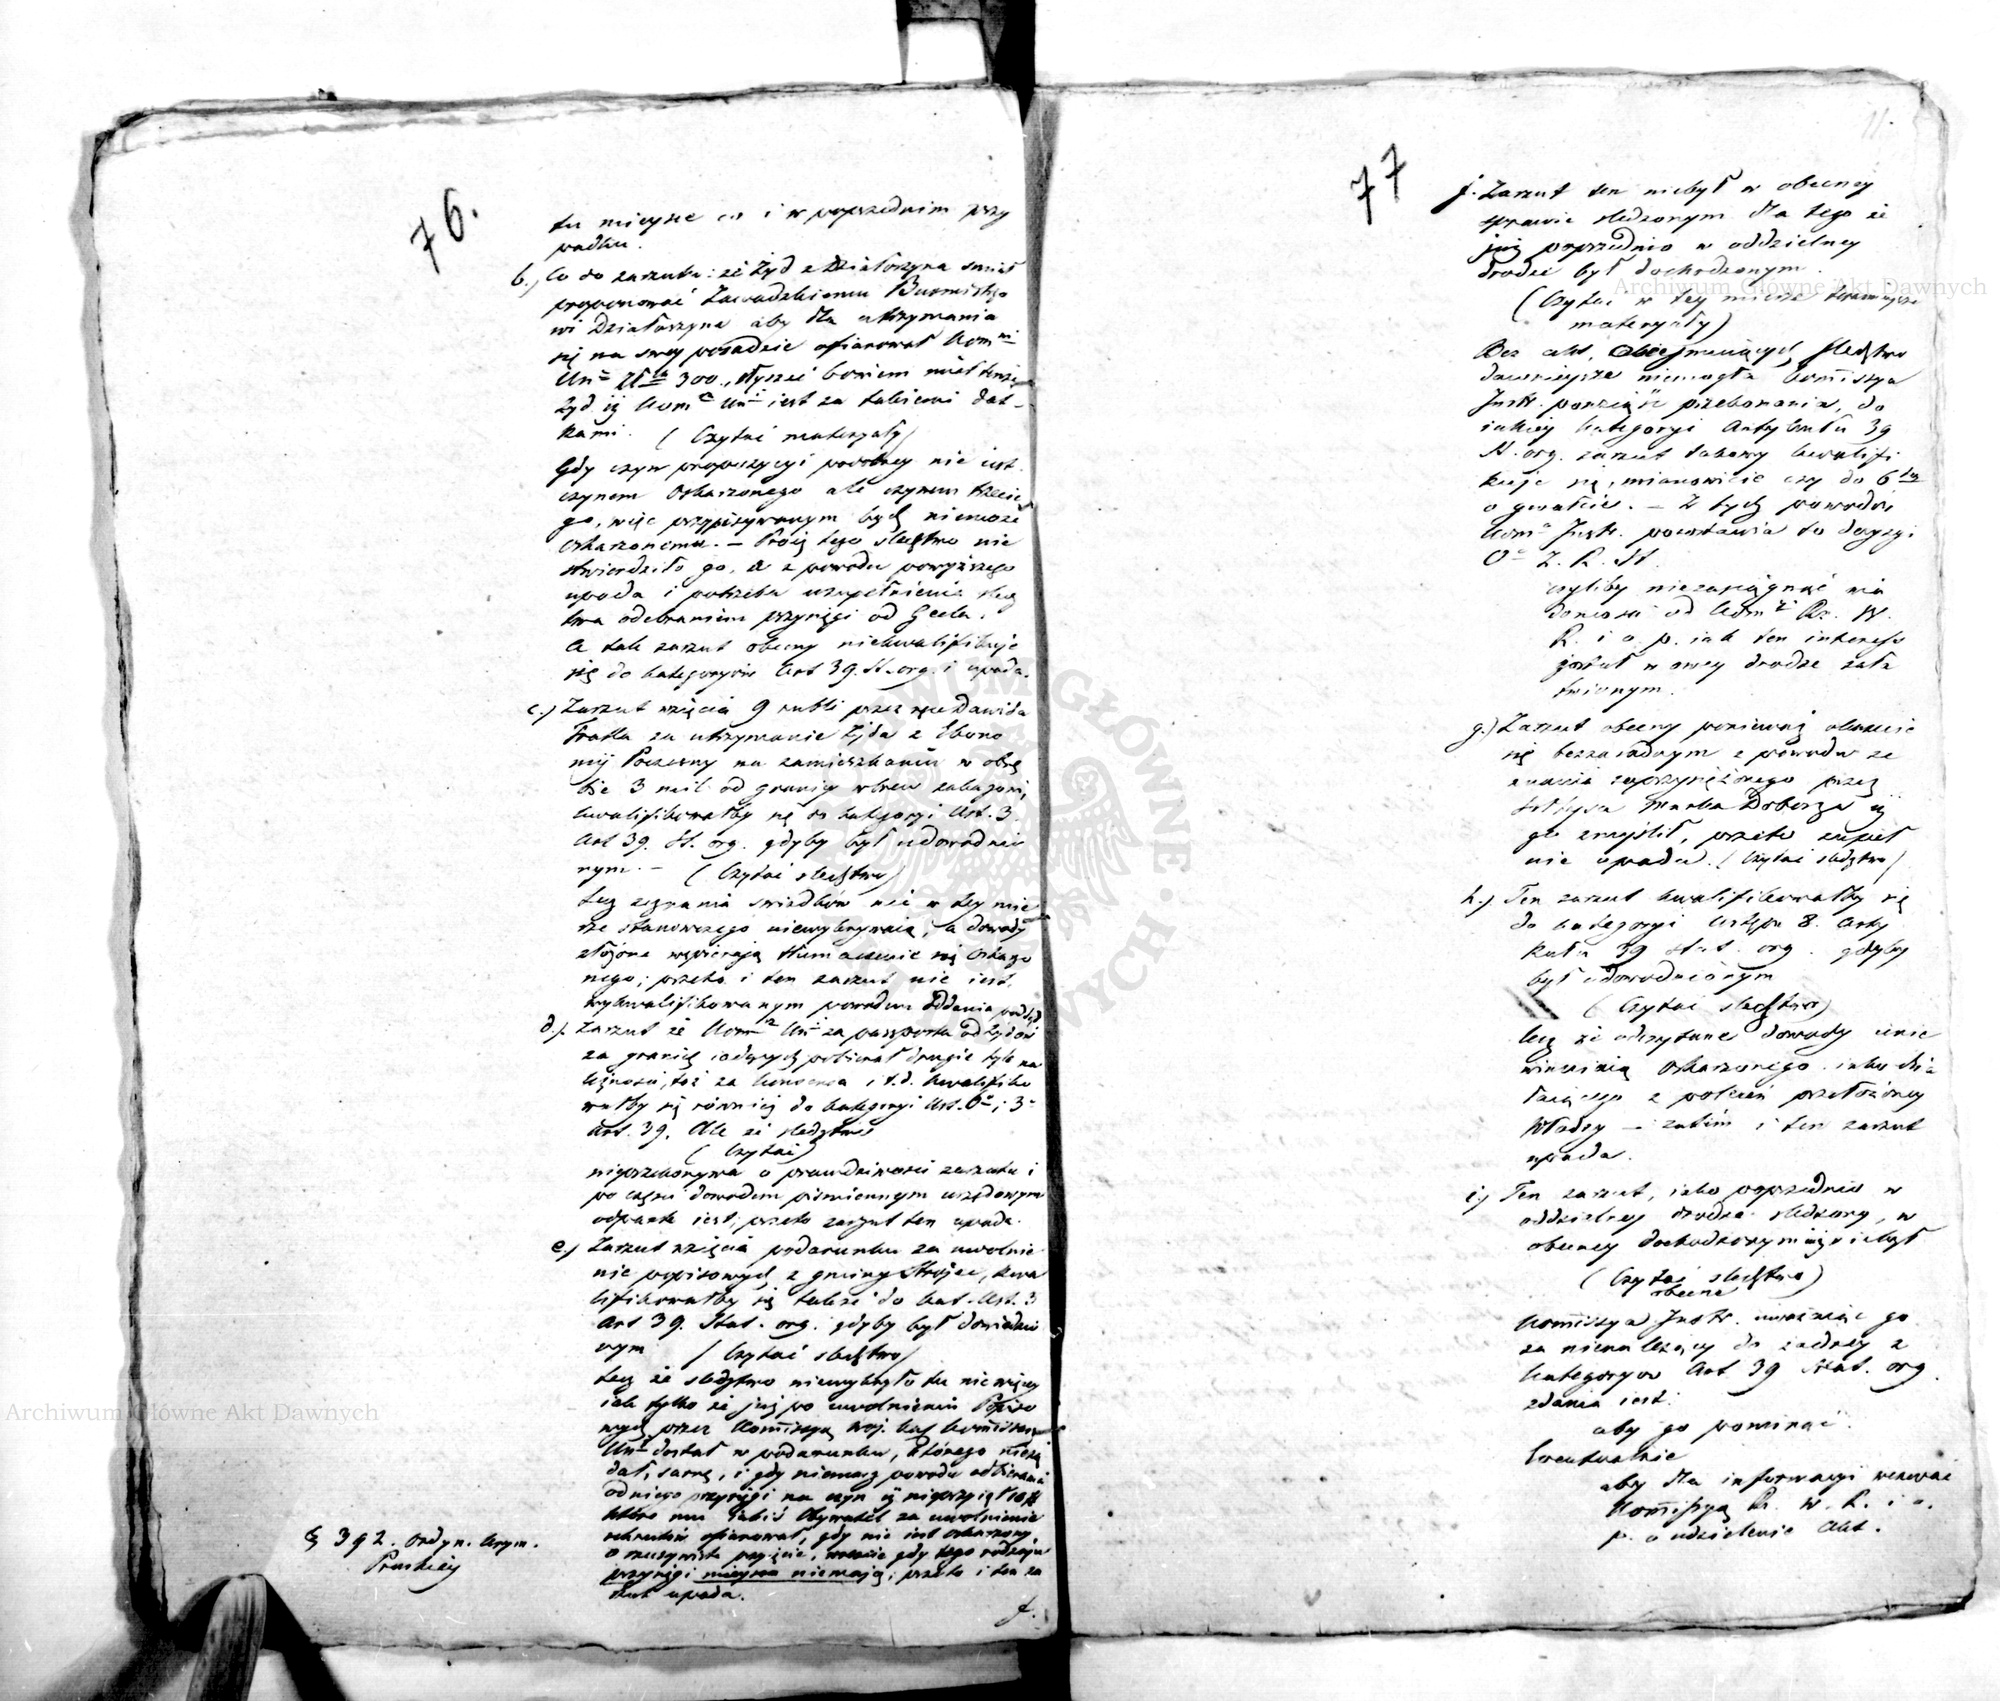 76.
tu mieysce co i w poprzednim przy
padku.
b.) Co do zarzutu: że Żyd z Działoszyna smiał
proponować Zawadzkiemu Burmistrzo
wi Działoszyna aby dla utrzymania
się na swey posadzie ofiarował Kom
Un 300., słyszeć bowiem miał tenże
Żyd iż Kom Un iest za takiemi dat-
kami. (Czytać materyały)
Gdy czyn propozycyi podobney nie iest
czynem Oskarzonego ale czynem trzecie
go, więc przypisywanym bydź niemoże
Oskarzonemu. – Prócz tego sledztwo nie
stwierdziło go, a z powodu powyższego
upada i potrzeba uzupełnienia sledz
twa odebraniem przysięgi od
A tak zarzut obecny niekwalifikuje
się do kategoryów Art 39. St. org. i upada.
c.) Zarzut wzięcia 9 rubli przez ręce Dawida
za utrzymanie Żyda z Ekono
mij Poczesny na zamieszkaniu w obrę
bie 3 mil od granicy wbrew zakazom,
kwalifikowałby się do kategoryi Ust. 3.
Art 39. St. org. gdyby był udowodnio
nym. – (Czytać sledztwo)
Lecz zeznania swiadków nic w tey mie
rze stanowczego niewykrywają, a dowody
złożone wspierają tłumaczenie się Oskarżo
nego; przeto i ten zarzut nie iest
wykwalifikowanym powodem Oddania pod Sąd
d.) Zarzut że Kom Un za paszporta od Żydów
za granicę iadących pobierał drugie tyle na
leżności, toż za konsensa i t.d. kwalifiko
wałby się również do kategoryi Ust. 3
Art. 39. Ale że sledztwo
(Czytać)
nieprzekonywa o prawdziwości zarzutu i
po części dowodem piśmiennym urzędowym
odparte iest; przeto zarzut ten upada.
e.) Zarzut wzięcia podarunku za uwolnie
nie popisowych z gminy Strojec, kwa
lifikowałby się także do kat. Ust. 3
Art 39. Stat. org. gdyby był dowiedzio
nym (Czytać sledztwo)
Lecz że sledztwo niewykryło tu nic więcey
iak tylko że już po uwolnieniu Popiso
wych przez Kommissyą Woj. Kommissarz
Un dostał w podarunku, którego nieżą
dał, sarnę, i gdy niemasz powodu odbierania
od niego przysięgi na czyn iż nieprzyiął
które mu iakiś Obywatel za uwolnienie
rekrutów ofiarował, gdy nie iest oskarzony
o rzeczywiste przyięcie, wreszcie gdy tego rodzaju
przysięgi mieysca niemają; przeto i ten za
rzut upada.
§ 392. Ordyn. Krym.
Pruskiey
f.
77
11.
f. Zarzut ten niebył w obecney
sprawie sledzonym dla tego że
już poprzednio w oddzielney
drodze był dochodzonym.
(Czytać w tey mierze
materyały)
Bez akt, obejmujących sledztwo
dawnieysze niemogła Kommissya
Instr. powziąść przekonania, do
iakiey kategoryi Artykułu 39
St. org. zarzut takowy kwalifi
kuje się, mianowicie czy do 6
o gwałcie. – Z tych powodów
Kom Instr. pozostawia to decyzyi
O Z. R. St.
czyliby niezasiągnąć wia
domości od Kom Rz. W.
R. i o. p. iak ten interess
został w owey drodze zała
twionym.
g.) Zarzut obecny ponieważ okazuie
się bezzasadnym z powodu ze
znania zaprzysiężonego przez
Marka Doborza iż
go zmyślił, przeto zupeł
nie upada. (Czytać sledztwo)
h.) Ten zarzut kwalifikowałby się
do kategoryi Ustępu 8. Arty
kułu 39 Stat. org. gdyby
był udowodnionym
(Czytać sledztwo)
Lecz że odczytane dowody unie
winniają Oskarzonego iako dzia
łaiącego z poleceń przełożoney
Władzy – zatem i ten zarzut
upada.
i.) Ten zarzut, iako poprzednio w
oddzielney drodze sledzony, w
obecney dochodzonym iuż niebył
(Czytać sledztwo)
obecne
Kommissya Instr. uważając go
za nienależący do żadney z
kategoryów Art 39 Stat. org.
zdania iest:
aby go pominąć.
Ewentualnie
aby dla informacyi wezwać
Kommissyą Rz. W. R. i o.
p. o udzielenie Akt.
Archiwum Główne Akt Dawnych
Archiwum Główne Akt Dawnych